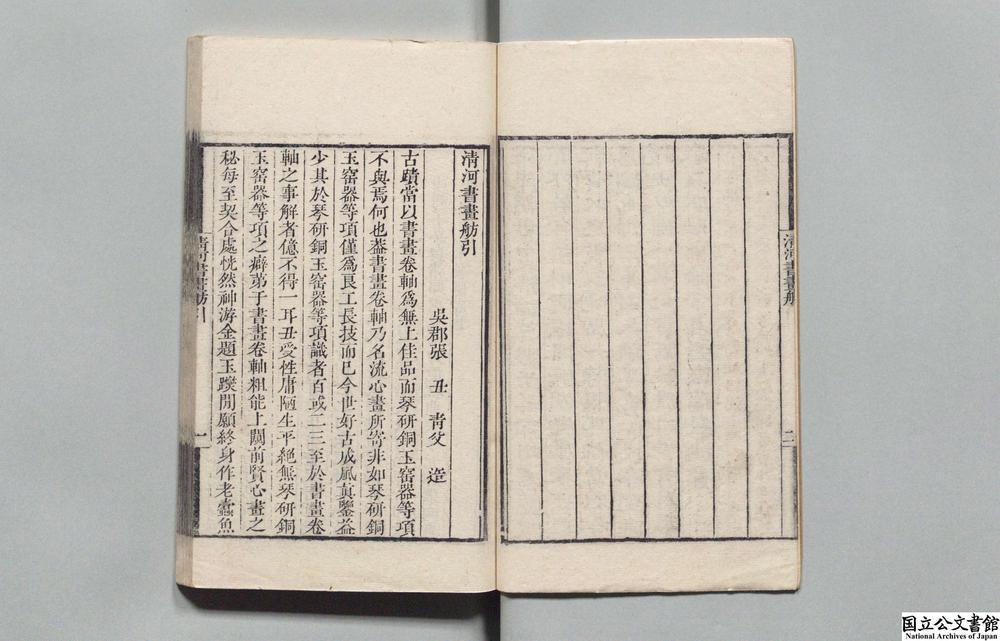 清河書畫舫
二
清河書畫舫引
吳郡張 丑 青父 造
古蹟當以書畫卷軸爲無上佳品而琴研銅玉窑器等項
不與焉何也葢書畫卷軸乃名流心畫所寄非如琴研銅
玉窑器等項僅爲良工長技而已今世好古成風眞鑒益
少其於琴研銅玉窑器等項識者百或二三至於書畫卷
軸之事解者億不得一耳丑受性庸陋生平絕無琴研銅
玉窑器等項之癖苐于書畫卷軸粗能上闚前賢心畫之
秘每至契合處恍然神游金題玉躞間願終身作老蠹魚
清河書畫舫引
一
国立公文書館
National Archives of Japan